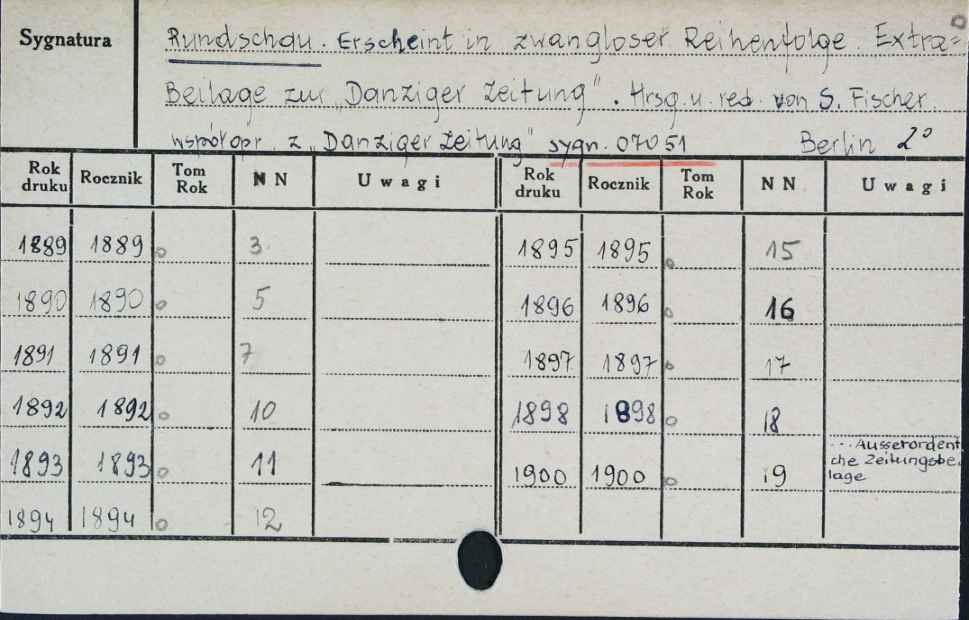 Sygnatura
Rundschau. Erscheint in zwangloser Reihenfolge. Extra=
Beilage zur „Danziger Zeitung". Hrsg. u. red. von S. Fischer.
współopr. z „Danziger Zeitung" sygn. 07051 Berlin 2°
Rok druku Rocznik Tom Rok NN Uwagi Rok druku Rocznik Tom Rok NN Uwagi
1889 1889 3 1895 1895 15
1890 1890 5 1896 1896 16
1891 1891 7 1897 1897 17
1892 1892 10 1898 1898 18
1893 1893 11 1900 1900 19 ...Ausserordent
che Zeitungsbei
lage
1894 1894 12